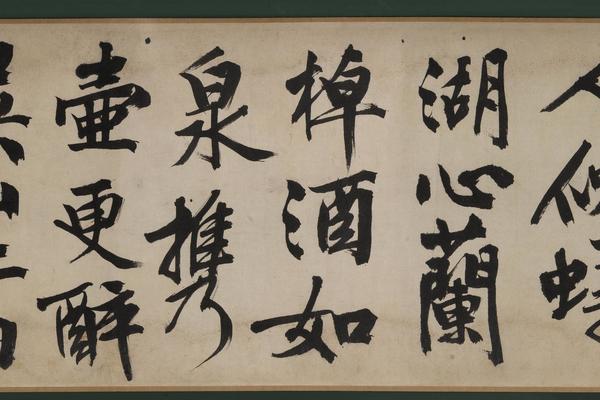 湖心蘭
棹酒如
泉携
壺更醉